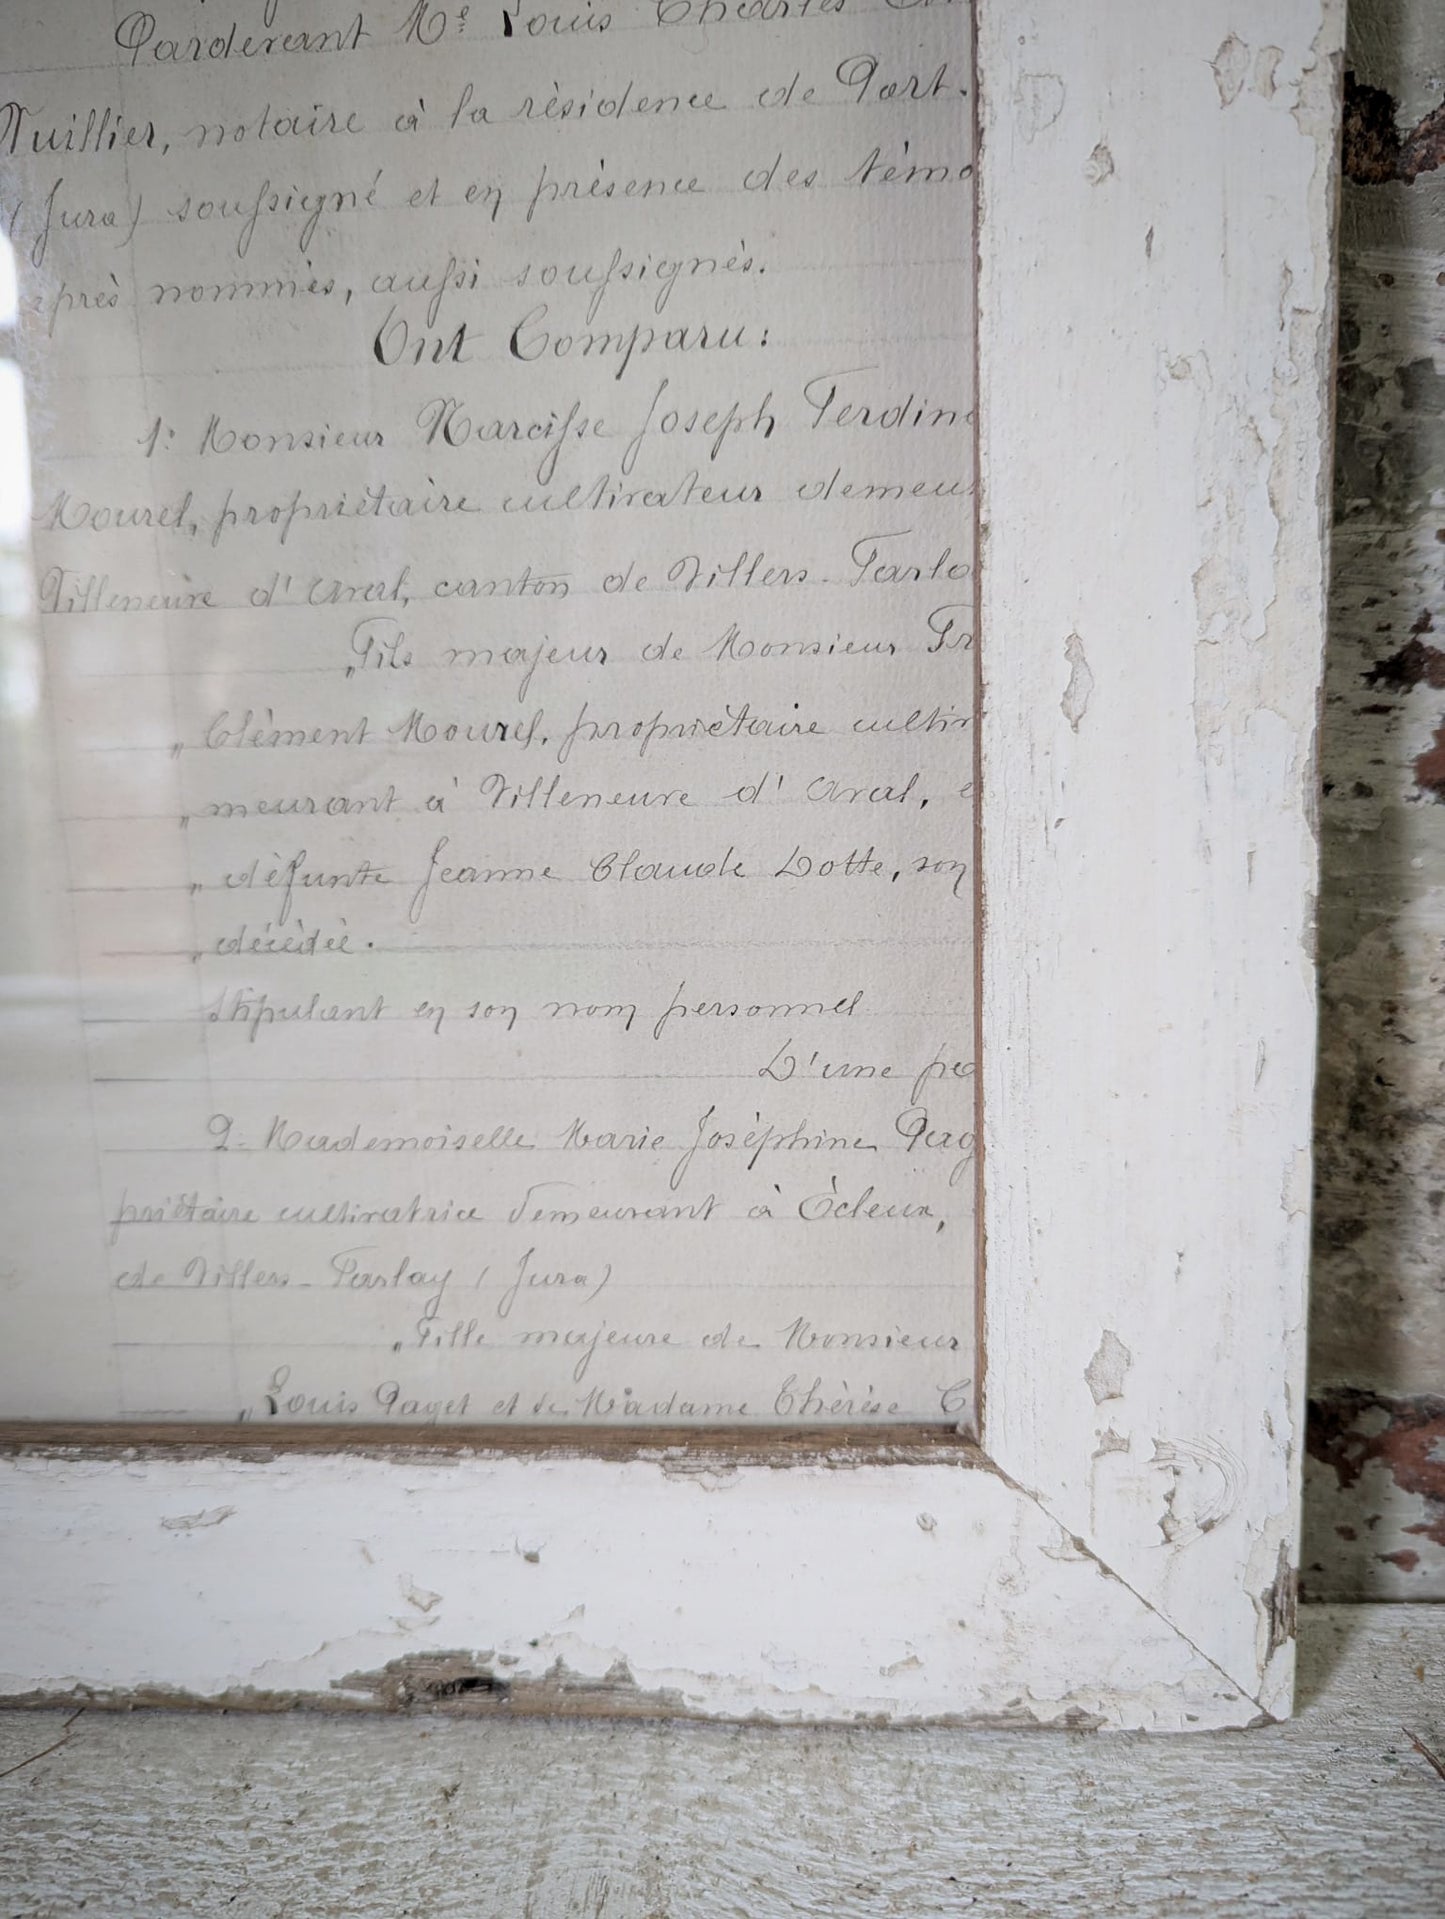 Pardevant Me Louis Charles
Vuillier, notaire à la résidence de Port-
(Jura) soussigné et en présence des témo
après nommés, aussi soussignés.
Ont Comparu:
1: Monsieur Narcisse Joseph Ferdin
Mourel, propriétaire cultivateur demeu
Villeneuve d'Aval, canton de Villers-Farla
„Fils majeur de Monsieur Fr
„Clément Mourel, propriétaire cultiv
„meurant à Villeneuve d'Aval, e
„défunte Jeanne Claude Lotte, son
„décédée.
Stipulant en son nom personnel
D'une pa
2: Mademoiselle Marie Joséphine Pag
priétaire cultivatrice demeurant à Écleux,
de Villers-Farlay (Jura)
„Fille majeure de Monsieur
„Louis Paget et de Madame Thérèse C